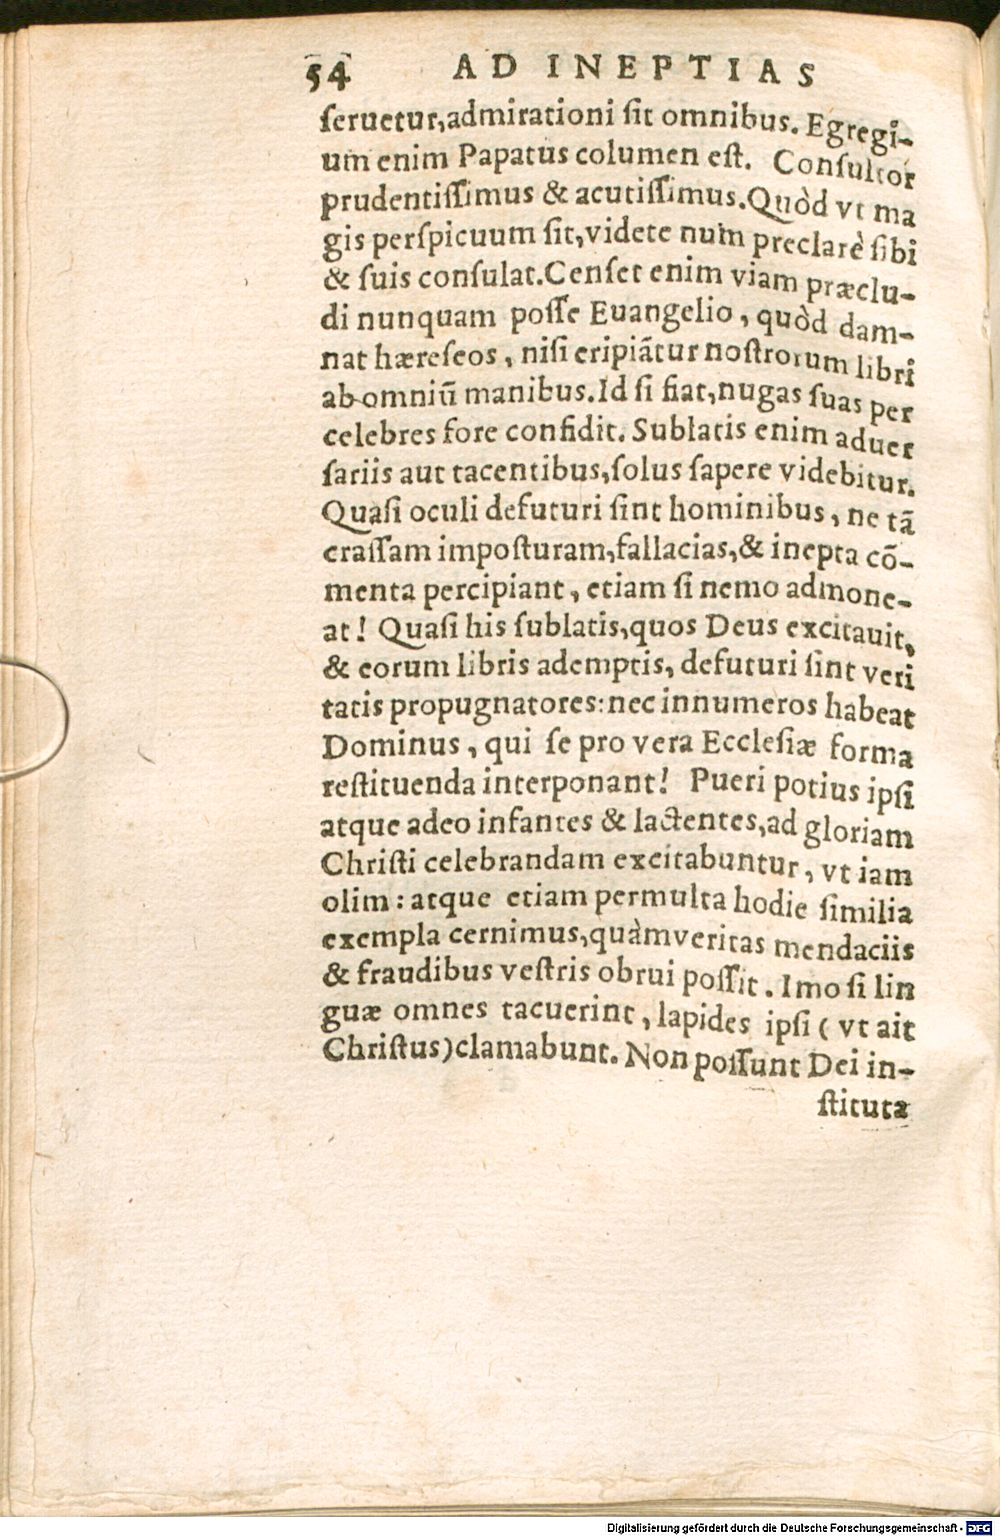 54 AD INEPTIAS
ſeruetur,admirationi ſit omnibus. Egregi-
um enim Papatus columen eſt. Conſultor
prudentiſſimus & acutiſſimus.Quòd vt ma
gis perſpicuum ſit,videte num preclarè ſibi
& ſuis conſulat.Cenſet enim viam præclu-
di nunquam poſſe Euangelio, quòd dam-
nat hæreſeos, niſi eripiātur noſtrorum libri
ab omniū manibus.Id ſi fiat,nugas ſuas per
celebres fore confidit. Sublatis enim aduer
ſariis aut tacentibus,ſolus ſapere videbitur.
Quaſi oculi defuturi ſint hominibus, ne tā
craſſam impoſturam,fallacias,& inepta cō-
menta percipiant, etiam ſi nemo admone-
at! Quaſi his ſublatis,quos Deus excitauit,
& eorum libris ademptis, defuturi ſint veri
tatis propugnatores:nec innumeros habeat
Dominus, qui ſe pro vera Eccleſiæ forma
reſtituenda interponant! Pueri potius ipſi
atque adeo infantes & lactentes,ad gloriam
Chriſti celebrandam excitabuntur, vt iam
olim: atque etiam permulta hodie ſimilia
exempla cernimus,quàm veritas mendaciis
& fraudibus veſtris obrui poſſit. Imo ſi lin
guæ omnes tacuerint, lapides ipſi ( vt ait
Chriſtus)clamabunt. Non poſſunt Dei in-
ſtituta
Digitalisierung gefördert durch die Deutsche Forschungsgemeinschaft - DFG